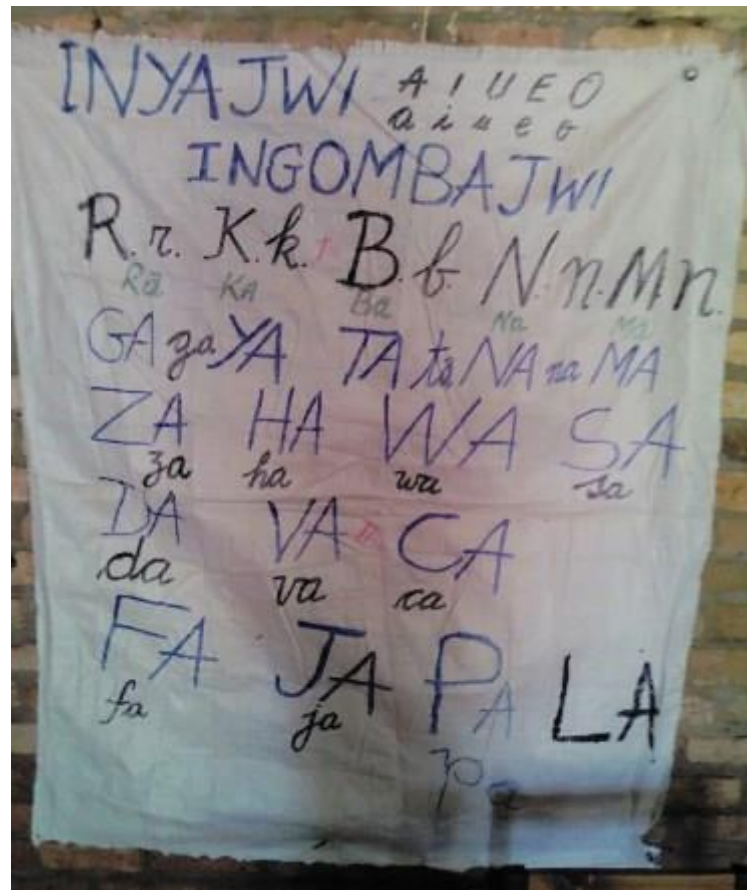 INYAJWI A I U E O
a i u e o
INGOMBAJWI
R. r. K. k. B. b. N. n. M n.
Ra KA Ba Na Ma
GA ga YA TA ta NA na MA
ZA HA WA SA
za ha wa sa
DA VA CA
da va ca
FA JA PA LA
fa ja
pa